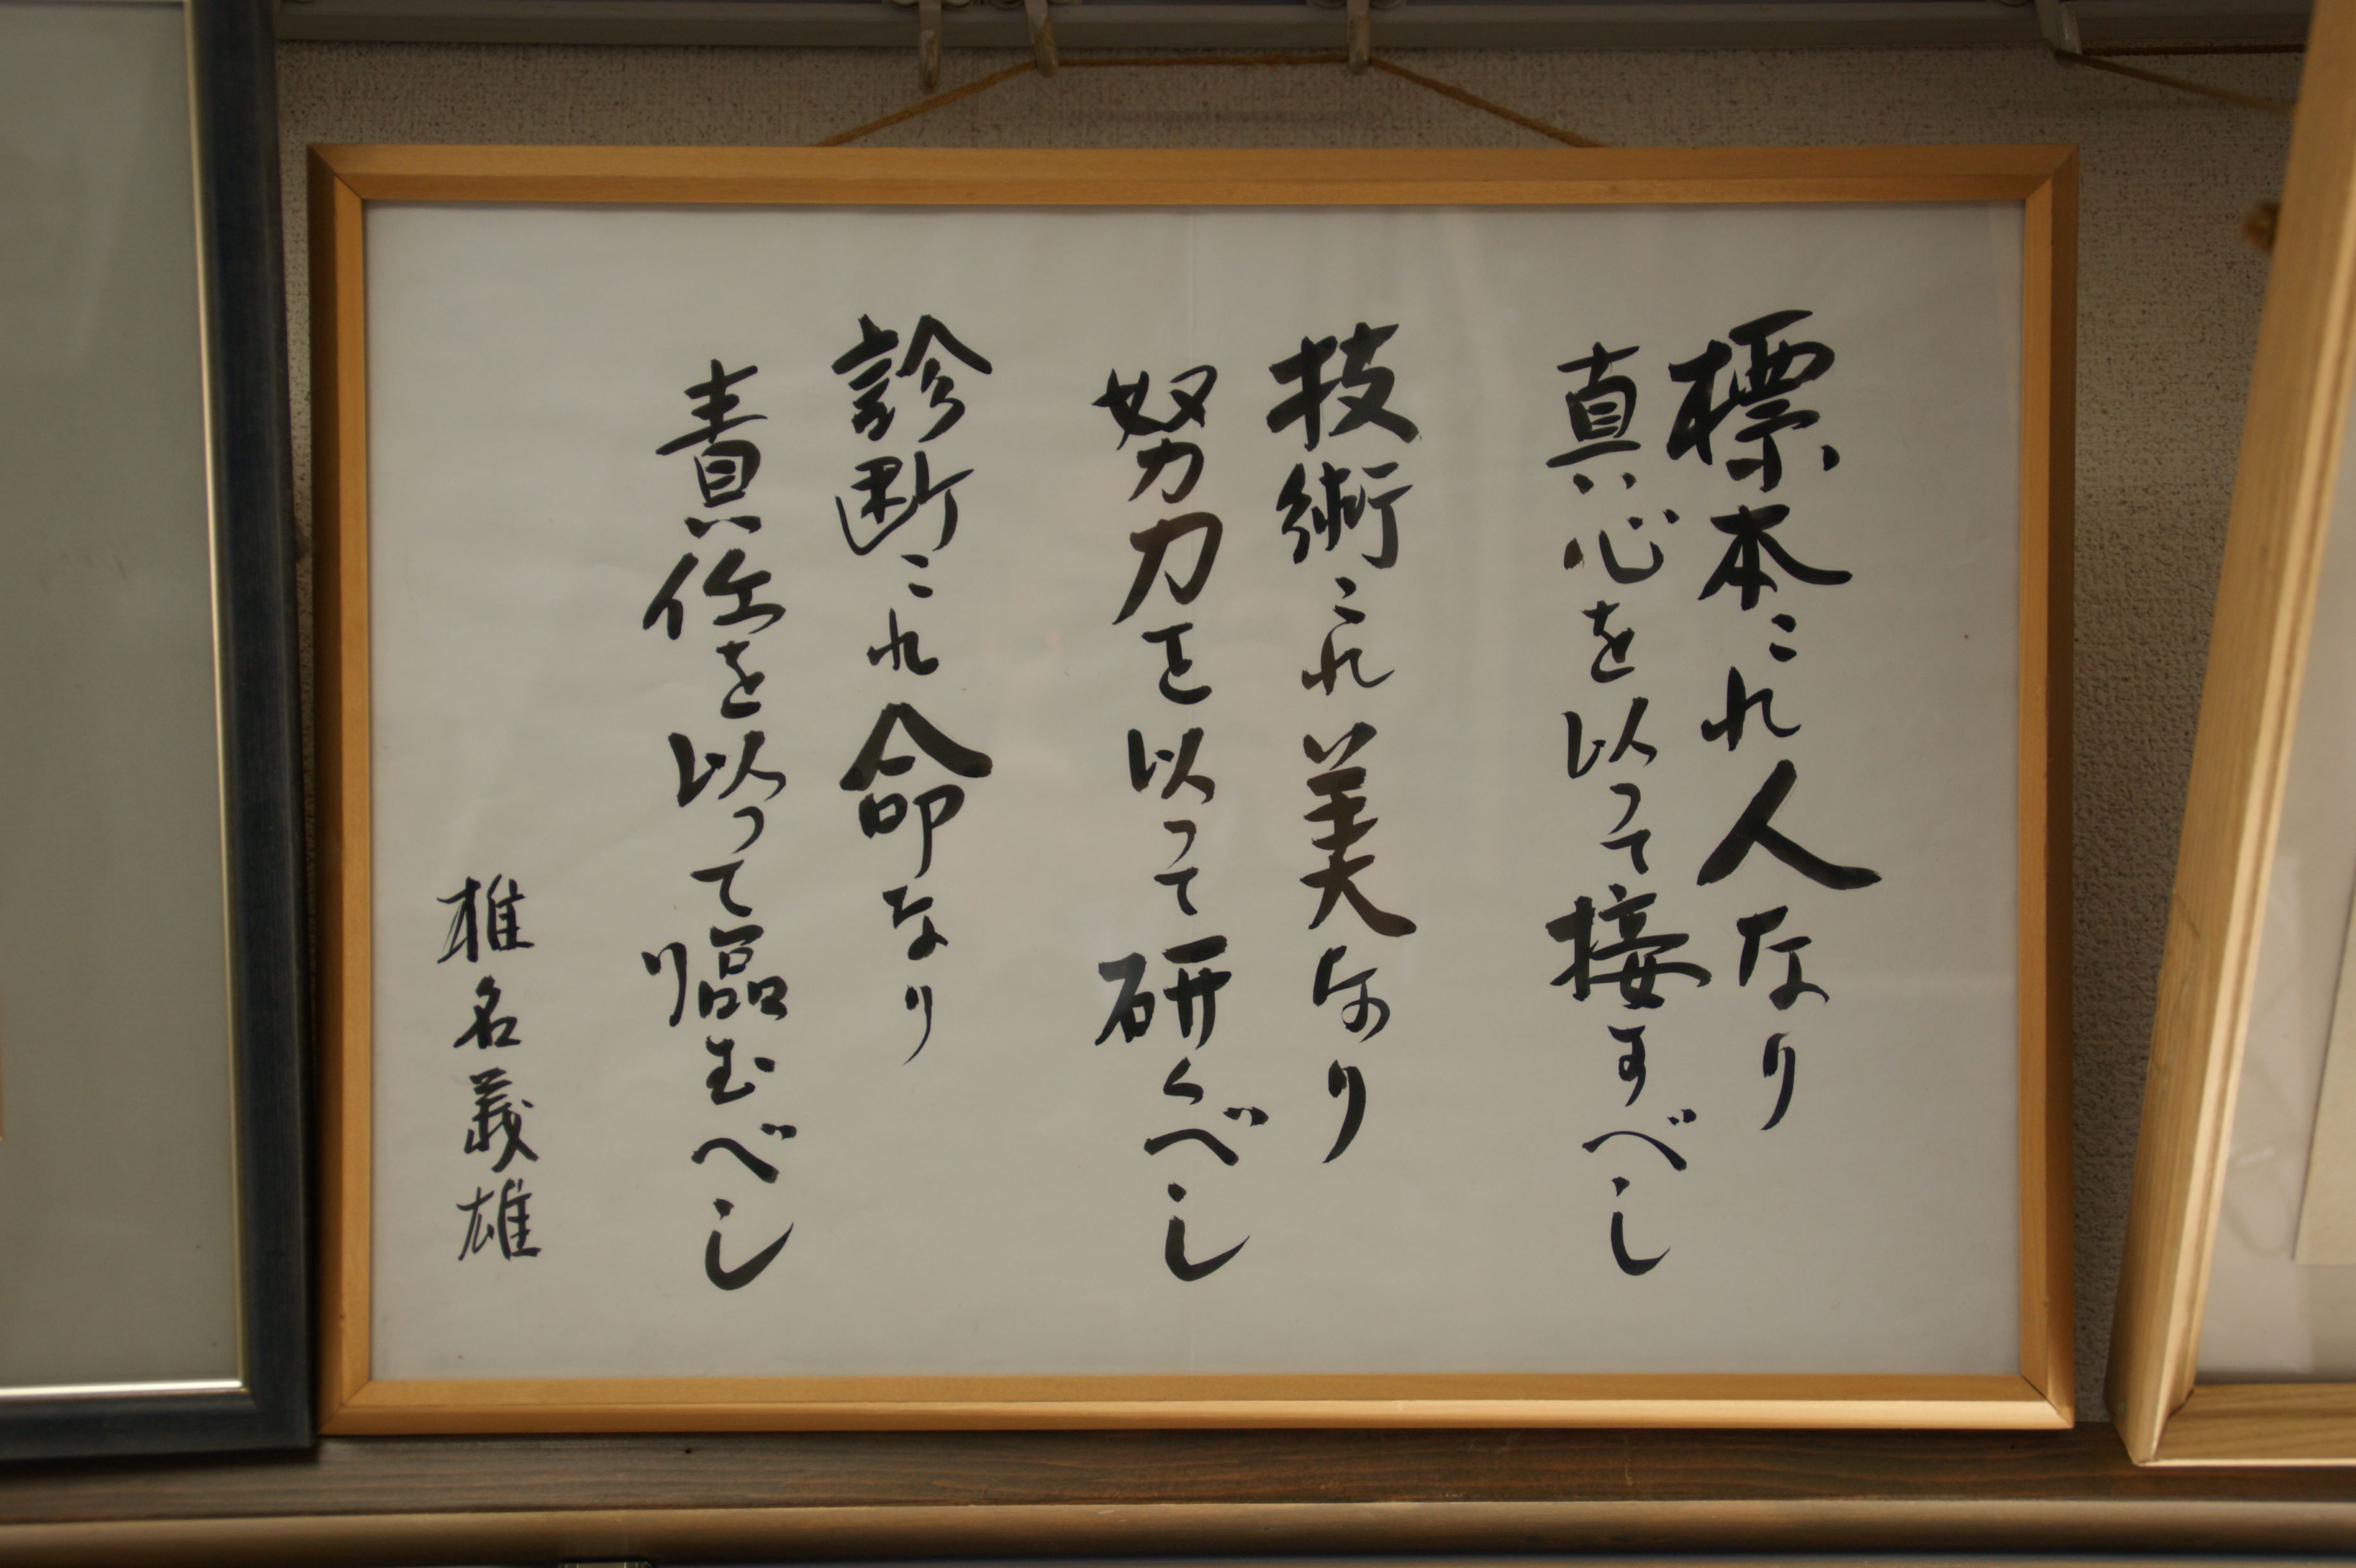 標本これ人なり
真心を以って接すべし
技術これ美なり
努力を以って研くべし
診断これ命なり
責任を以って臨むべし
椎名義雄